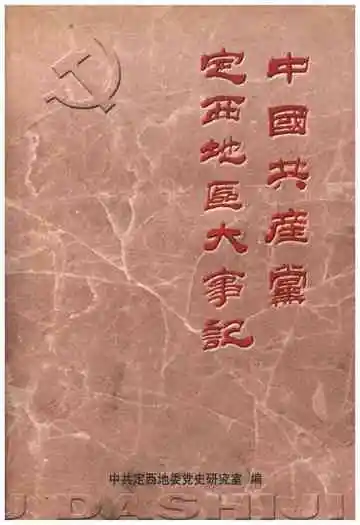 中國共産黨
定西地區大事記
中共定西地委党史研究室 编
J DASHIJI